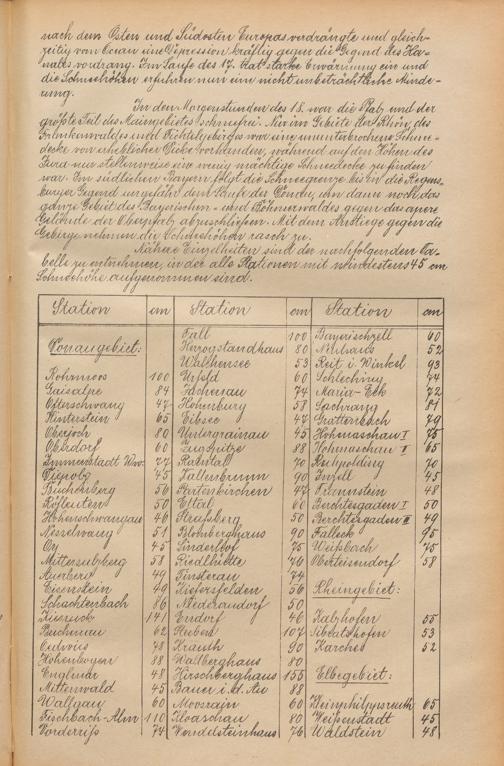 nach dem Osten und Südosten Europas verdrängte und gleich-
zeitig vom Ozean eine Depression kräftig gegen die Gegend des Ka-
nales vordrang. Im Laufe des 17. trat starke Erwärmung ein und
die Schneehöhen erfuhren nun eine nicht unbeträchtliche Minde-
rung.
In den Morgenstunden des 18. war die Pfalz und der
größte Teil des Maingebietes schneefrei. Nur im Gebiete der Rhön, des
Frankenwaldes und Fichtelgebirgs war eine ununterbrochene Schnee-
decke von erheblicher Dicke vorhanden, während auf den Höhen des
Jura nur stellenweise eine wenig mächtige Schneedecke zu finden
war. Im südlichen Bayern folgt die Schneegrenze bis in die Regens-
burger Gegend ungefähr dem Laufe der Donau, um dann noch das
ganze Gebiet des Bayerischen- und Böhmerwaldes gegen das apere
Gelände der Oberpfalz abzuschließen. Mit dem Anstiege gegen die
Gebirge nehmen die Schneehöhen rasch zu.
Nähere Einzelheiten sind der nachfolgenden Ta-
belle zu entnehmen, in der alle Stationen mit mindestens 45 cm
Schneehöhe aufgenommen sind.
Station cm Station cm Station cm
Fall 100 Bayerischzell 60
Donaugebiet: Herzogstandhaus 80 Neuhaus 52
Walchensee 53 Reit i. Winkel 93
Rohrmoos 100 60 Schleching 74
Gaisalpe 84 Jachenau 74 Maria-Eck 72
Ofterschwang 47 Hohenburg 58 Sachrang 81
Hinterstein 65 Eibsee 47 Grattenbach 79
Oberjoch 80 Untergrainau 45 Hohenaschau I 75
Oberdorf 60 Zugspitze 88 Hohenaschau II 65
Immenstadt Ww. 77 70 Ruhpolding 70
45 90 Inzell 45
Buchenberg 56 Partenkirchen 47 Traunstein 48
Röfleuten 50 Ettal 60 Berchtesgaden I 50
Hohenschwangau 46 Grafsberg 50 Berchtesgaden II 49
Nesselwang 51 Blombberghaus 90 Falleck 95
Oy 45 Linderhof 75 Weißbach 75
Mittenselberg 58 Riedlhütte 46 Oberteisendorf 58
Auerberg 49 Finsterau 74
Eisenstein 49 Kiefersfelden 56 Rheingebiet:
Schachtenbach 86 Niederaudorf 50
141 Endorf 46 Katzhofen 55
Buchenau 62 107 Sibratshofen 53
48 Kreuth 90 Karches 52
Hohenbogen 88 Wallberghaus 80
48 Hirschberghaus 155 Elbegebiet:
Mittenwald 45 Bauer i. d. Au 88
Wallgau 60 Moosrain 60 65
Fischbach-Alm 110 Kloaschau 80 Weißenstadt 45
Vorderriß 74 Wendelsteinhaus 76 Waldstein 48